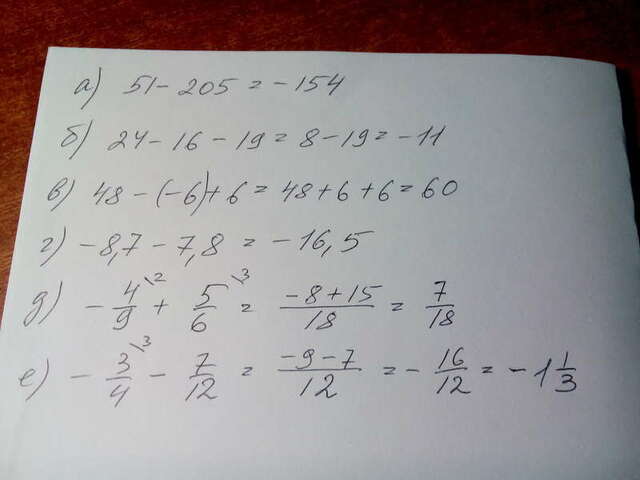 а) 51 - 205 = -154
б) 24 - 16 - 19 = 8 - 19 = -11
в) 48 - (-6) + 6 = 48 + 6 + 6 = 60
г) -8,7 - 7,8 = -16,5
д) - 4\2/9 + 5\3/6 = (-8+15)/18 = 7/18
е) - 3\3/4 - 7/12 = (-9-7)/12 = - 16/12 = -1 1/3